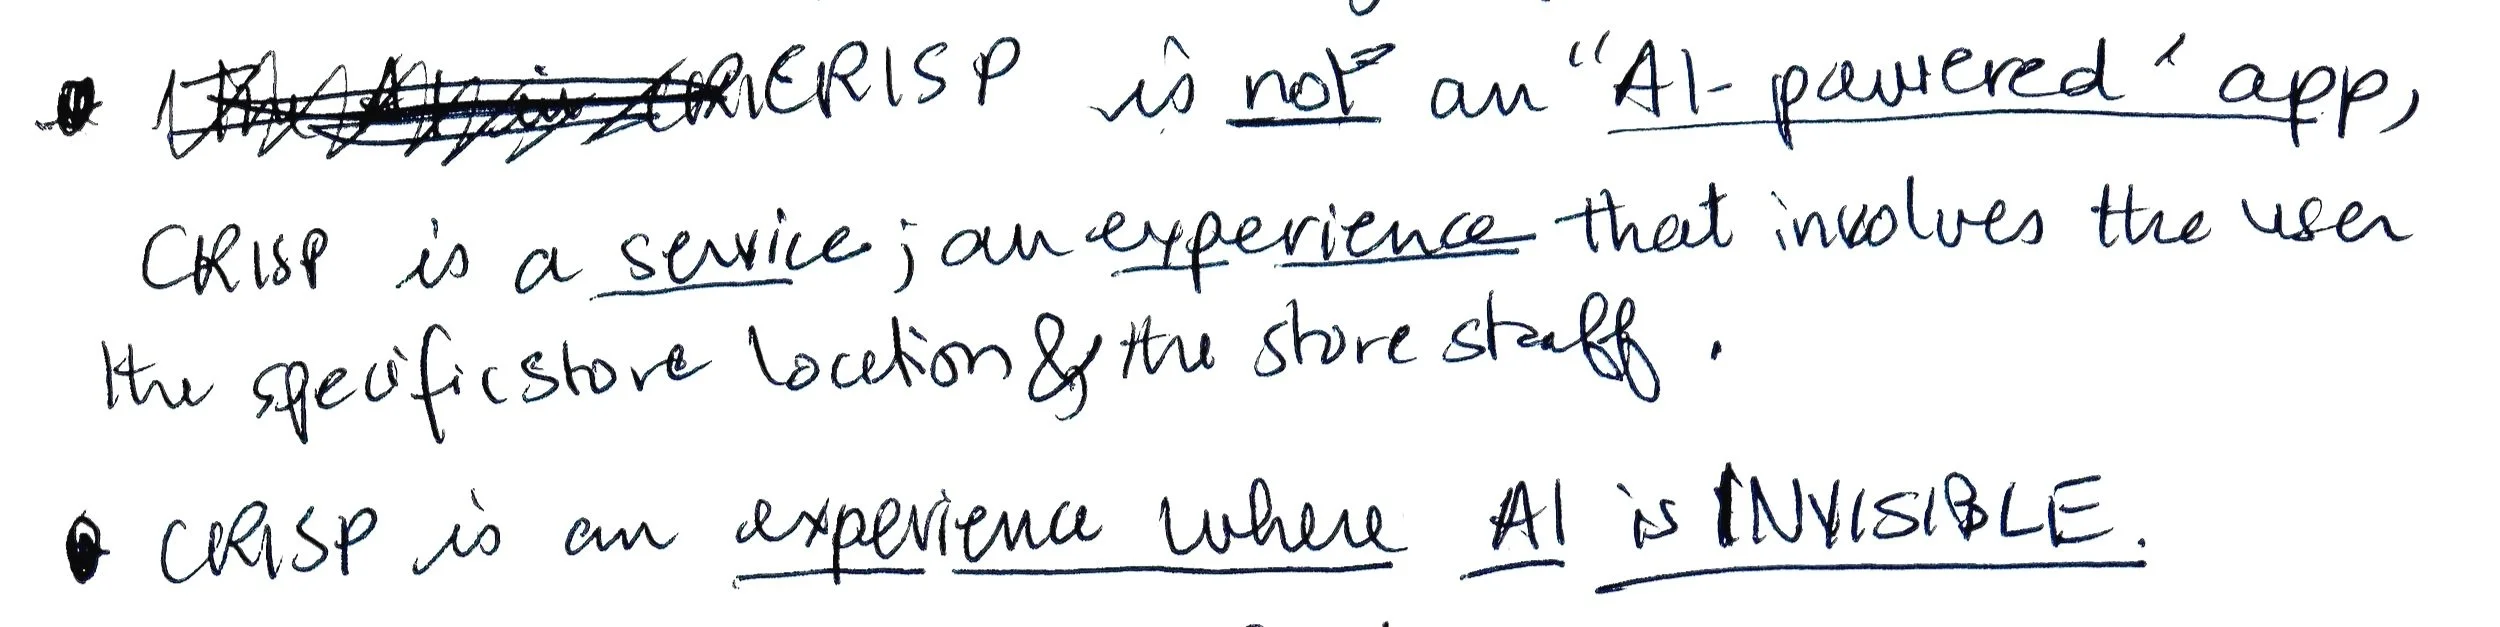 • CRISP is not an "AI-powered" app,
CRISP is a service; an experience that involves the user
the specific store location & the store staff.
• CRISP is an experience where AI is INVISIBLE.